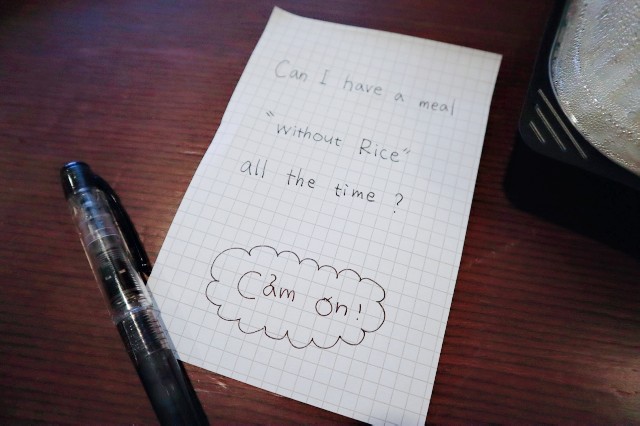 Can I have a meal
"without Rice"
all the time?
Cảm ơn!